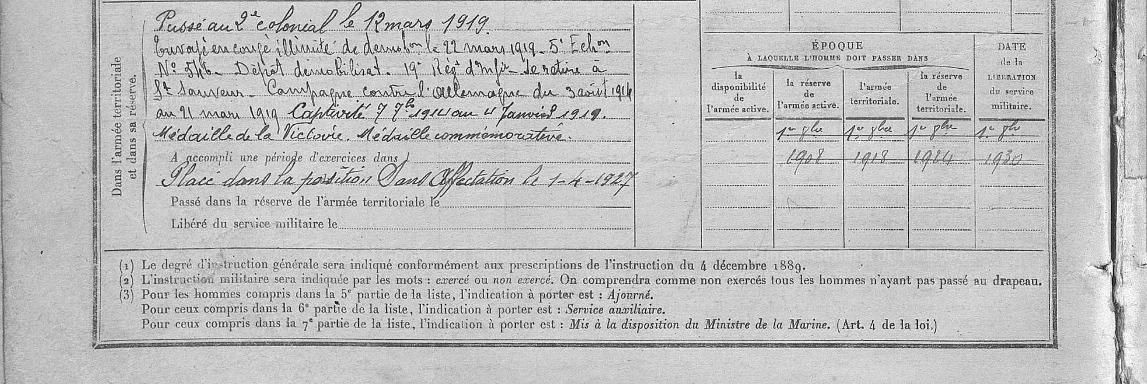 Dans l'armée territoriale
et dans sa réserve.
Passé au 2e colonial le 12 mars 1919.
Envoyé en congé illimité de démobon le 22 mars 1919. 5e Echon
No 546. Dépôt démobilisat. 19e Régt d'Infie. Se retire à
St Sauveur. Campagne contre l'Allemagne du 3 août 1914
au 21 mars 1919 Captivité 7 7bre 1914 au 4 Janvier 1919.
Médaille de la Victoire. Médaille commémorative.
A accompli une période d'exercices dans
Placé dans la position Sans Affectation le 1-4-1927
Passé dans la réserve de l'armée territoriale le
Libéré du service militaire le
ÉPOQUE
À LAQUELLE L'HOMME DOIT PASSER DANS
la disponibilité de l'armée active.
la réserve de l'armée active.
l'armée territoriale.
la réserve de l'armée territoriale.
DATE de la LIBÉRATION du service militaire.
1er 8bre 1er 8bre 1er 8bre 1er 8bre
1908 1918 1914 1930
(1) Le degré d'instruction générale sera indiqué conformément aux prescriptions de l'instruction du 4 décembre 1889.
(2) L'instruction militaire sera indiquée par les mots : exercé ou non exercé. On comprendra comme non exercés tous les hommes n'ayant pas passé au drapeau.
(3) Pour les hommes compris dans la 5e partie de la liste, l'indication à porter est : Ajourné.
Pour ceux compris dans la 6e partie de la liste, l'indication à porter est : Service auxiliaire.
Pour ceux compris dans la 7e partie de la liste, l'indication à porter est : Mis à la disposition du Ministre de la Marine. (Art. 4 de la loi.)